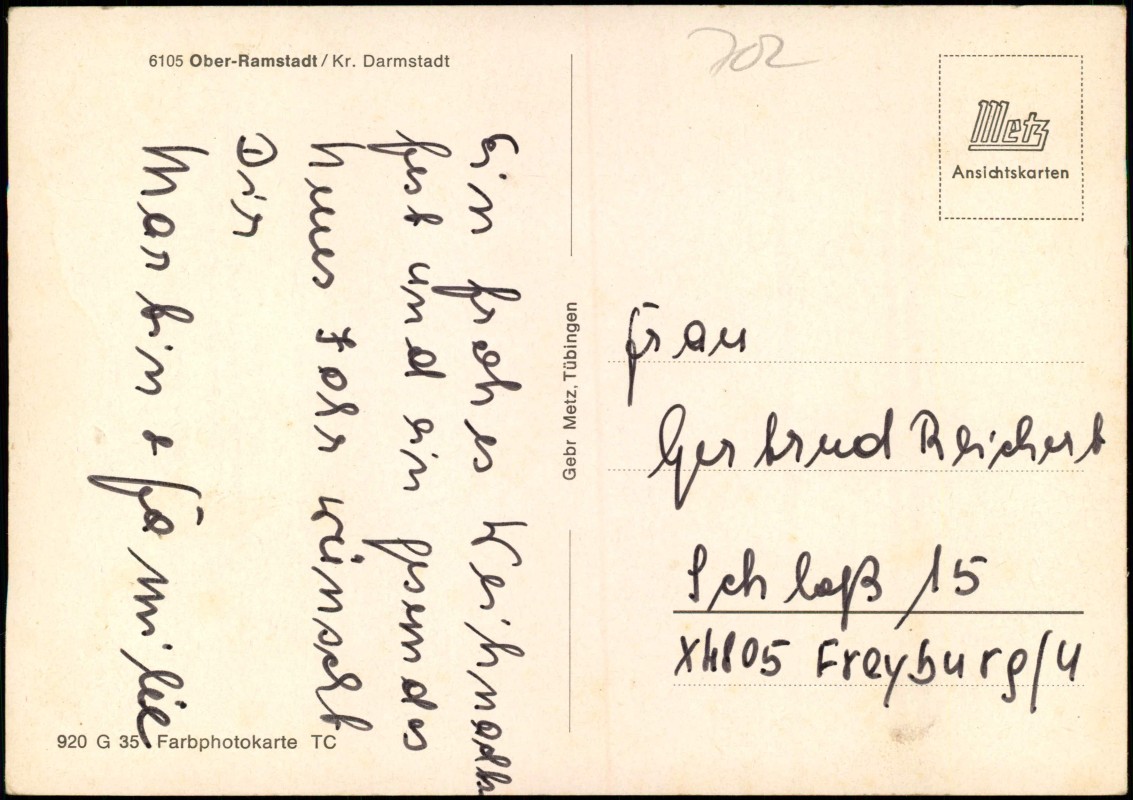 6105 Ober-Ramstadt / Kr. Darmstadt
Ein frohes Weihnachts
fest und ein gesundes
neues Jahr wünscht
Dir
Martin + Familie
920 G 35 Farbphotokarte TC
Gebr Metz, Tübingen
702
Metz
Ansichtskarten
Frau
Gertrud Reichert
Schloß 15
X4805 Freyburg/U